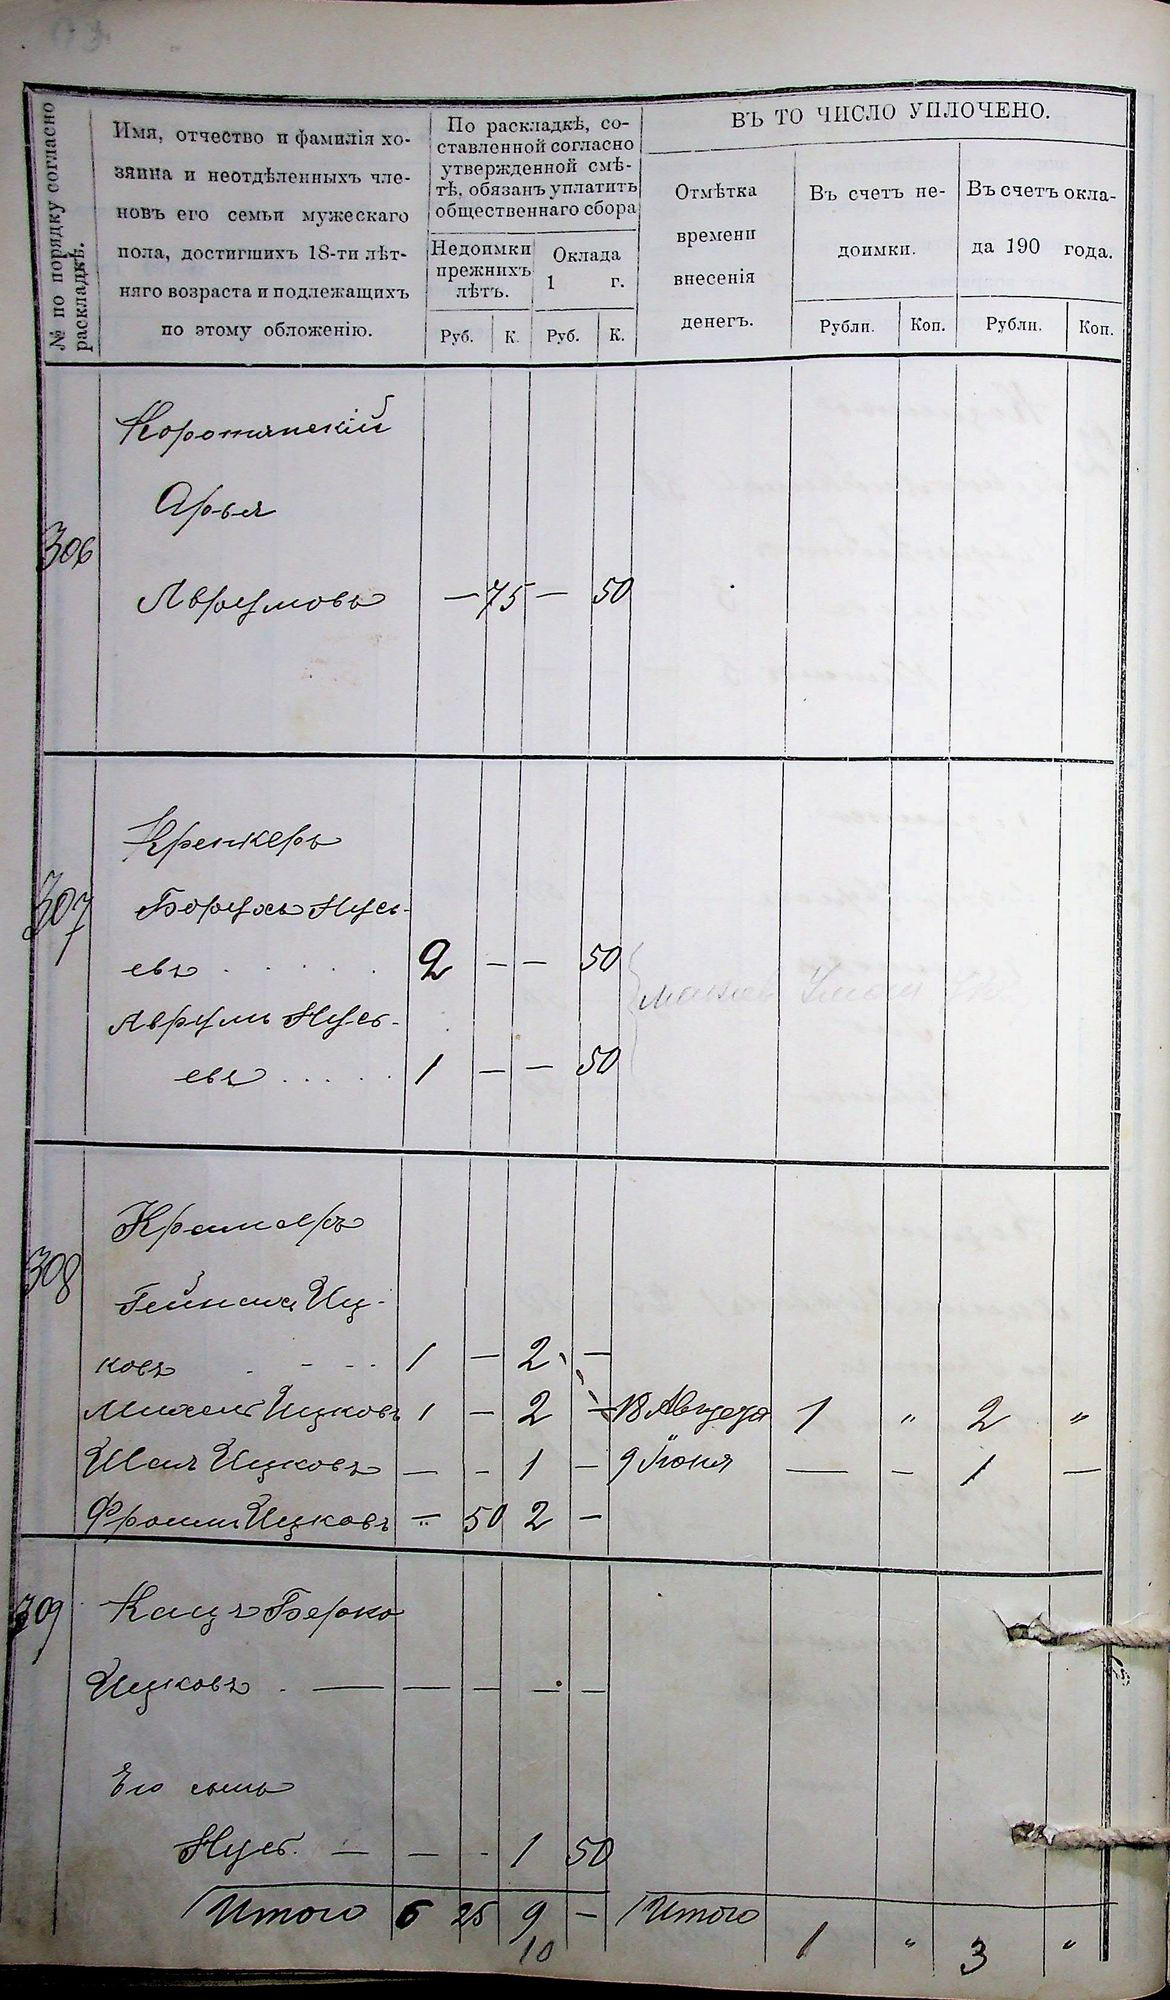 № по порядку согласно
раскладкѣ.
Имя, отчество и фамилія хо-
зяина и неотдѣленныхъ чле-
новъ его семьи мужескаго
пола, достигшихъ 18-ти лѣт-
няго возраста и подлежащихъ
по этому обложенію.
По раскладкѣ, со-
ставленной согласно
утвержденной смѣ-
тѣ, обязанъ уплатить
общественнаго сбора
Недоимки
прежнихъ
лѣтъ.
Оклада
1 г.
Руб. К. Руб. К.
ВЪ ТО ЧИСЛО УПЛОЧЕНО.
Отмѣтка
времени
внесенія
денегъ.
Въ счетъ не-
доимки.
Рубли. Коп.
Въ счетъ окла-
да 190 года.
Рубли. Коп.
306
Коротянскій
Арья
Аврумовъ — 75 — 50
307
Кренкеръ
Борухъ Нусь-
евъ . . . . . 2 — — 50
Аврумъ Нусь-
евъ . . . . . 1 — — 50
308
Крамеръ
Гейнихъ Иц-
ковъ - - - 1 — 2 —
Михель Ицковъ 1 — 2 — 18 Августа 1 " 2 "
Шая Ицковъ — - 1 — 9 Іюня — — 1 —
Фроимъ Ицковъ — 50 2 —
309
Кацъ Берко
Ицковъ . — — — — —
Его сынъ
Нусь. — — - 1 50
Итого 6 25 9 — Итого 1 " 3 "
10